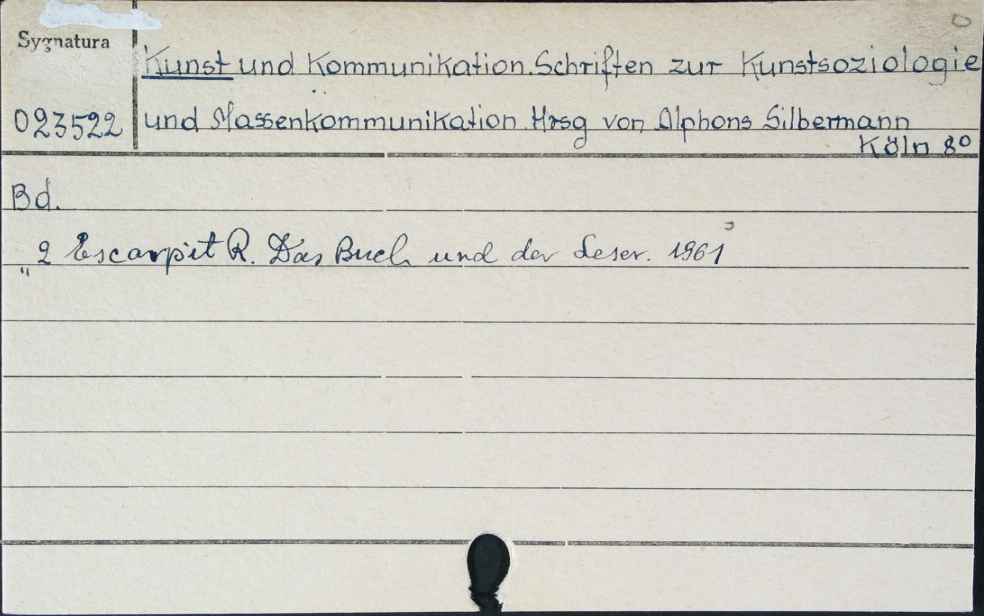 Sygnatura
Kunst und Kommunikation. Schriften zur Kunstsoziologie
023522 und Massenkommunikation. Hrsg von Alphons Silbermann
Köln 8°
Bd.
" 2 Escarpit R. Das Buch und der Leser. 1961